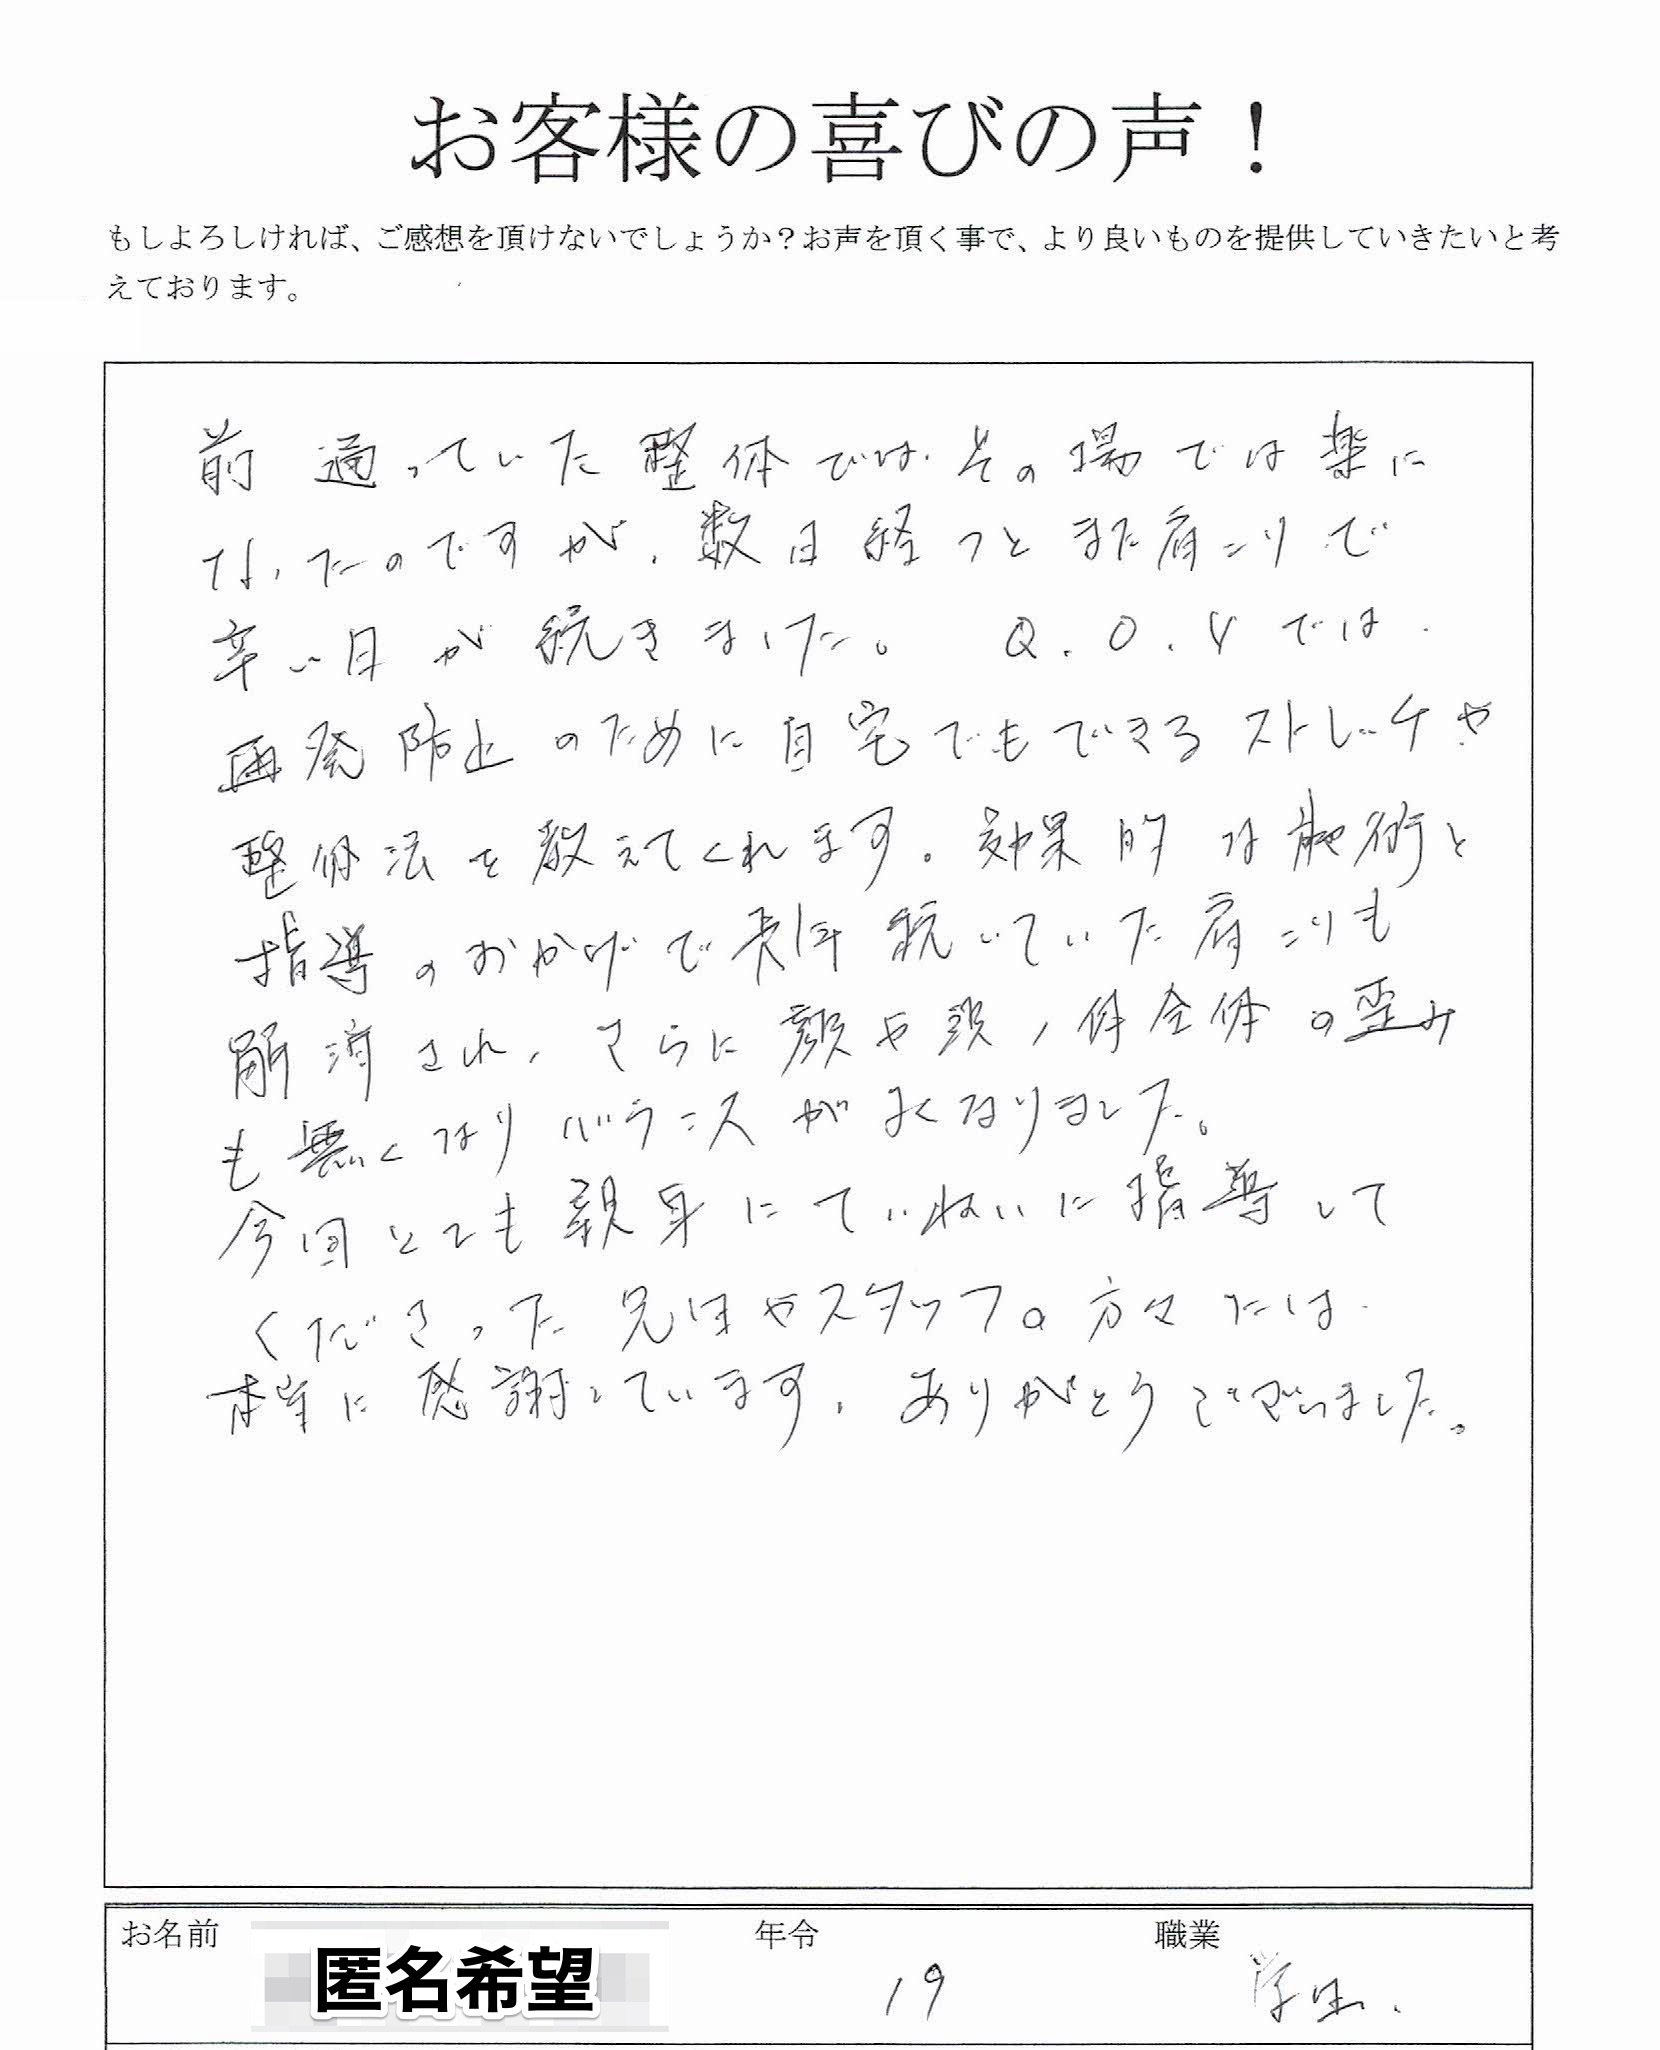 お客様の喜びの声！
もしよろしければ、ご感想を頂けないでしょうか？お声を頂く事で、より良いものを提供していきたいと考
えております。
前通っていた整体では、その場では楽に
なったのですが、数日経つとまた肩こりで
辛い日が続きました。 Q.O.Yでは、
再発防止のために自宅でもできるストレッチや
整体法を教えてくれます。効果的な施術と
指導のおかげで長年続いていた肩こりも
解消され、さらに顔や頭、体全体の歪み
も無くなりバランスがよくなりました。
今回とても親身にていねいに指導して
くださった先生やスタッフの方々には、
本当に感謝しています。ありがとうございました。
お名前 匿名希望 年令 19 職業 学生